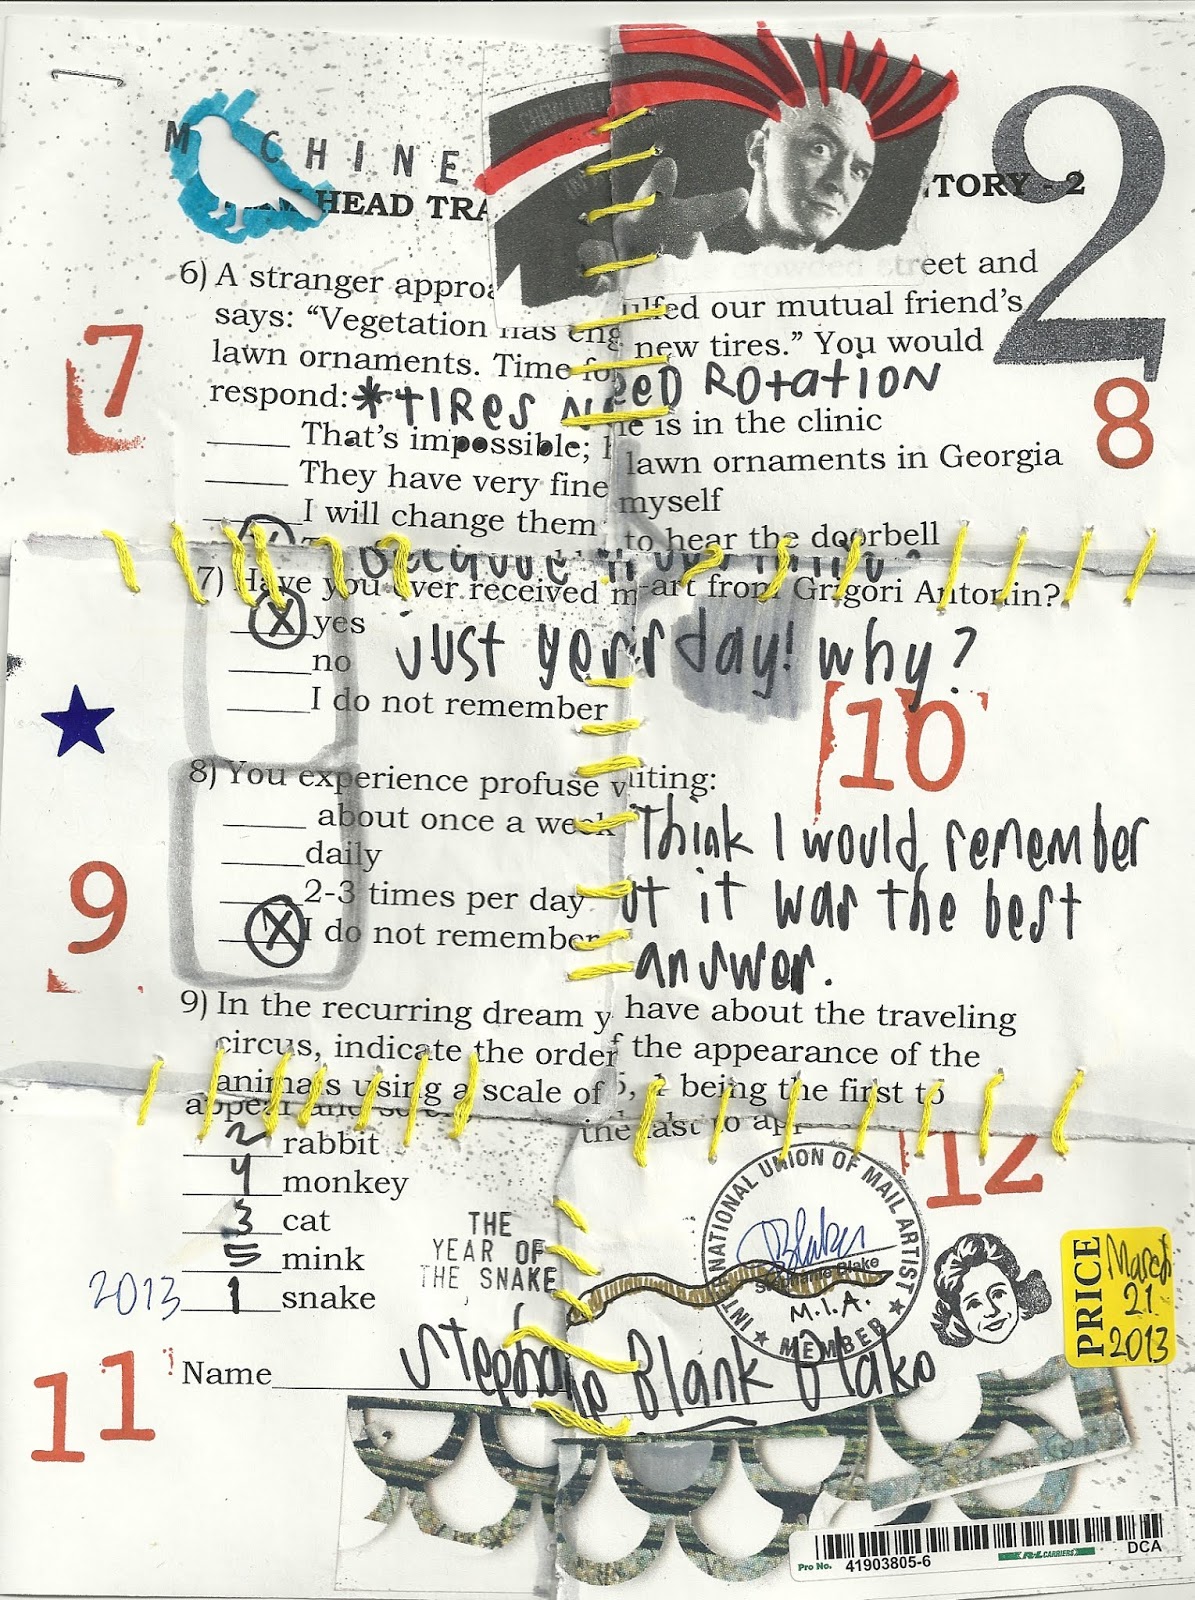 M CHINE
HEAD TRA TORY - 2
2
6) A stranger approa crowded street and
says: “Vegetation has eng ulfed our mutual friend’s
lawn ornaments. Time fo new tires.” You would
respond: *TIRES NEED ROTATION
7
8
That’s impossible; he is in the clinic
They have very fine lawn ornaments in Georgia
I will change them myself
to hear the doorbell
Because
7) Have you ever received m -art from Grigori Antonin?
X yes just yerrrday! why?
no
I do not remember
10
8) You experience profuse v iting:
about once a week Think I would remember
daily
2-3 times per day ut it was the best
X I do not remember answer.
9
9) In the recurring dream y have about the traveling
circus, indicate the order f the appearance of the
animals using a scale of 5, 1 being the first to
appear and so on the last to app
12
2 rabbit
4 monkey
3 cat
5 mink
2013 1 snake
THE
YEAR OF
THE SNAKE
INT NATIONAL UNION OF MAIL ARTIST
JBlake
Stephanie Blake
M.I.A.
★ MEMBER ★
PRICE
March
21
2013
11
Name Stephanie Blank Blake
Pro No. 41903805-6 R+L CARRIERS DCA